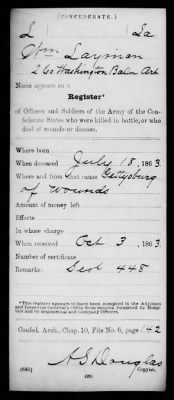 (CONFEDERATE.)
L La
Wm Layman
2 Co Washington Battn Art
Name appears on a
Register*
of Officers and Soldiers of the Army of the Confederate
States who were killed in battle, or who
died of wounds or disease.
Where born
When deceased July 18, 1863.
Where and from what cause Gettysburg
of wounds
Amount of money left
Effects
In whose charge
When received Oct 3, 1863.
Number of certificate
Remarks:
*This register appears to have been compiled in the Adjutant
and Inspector General's Office from reports furnished by Hospitals
and by Regimental and Company Officers.
Confed. Arch., Chap. 10, File No. 6, page 142
A. S. Douglas
Copyist.